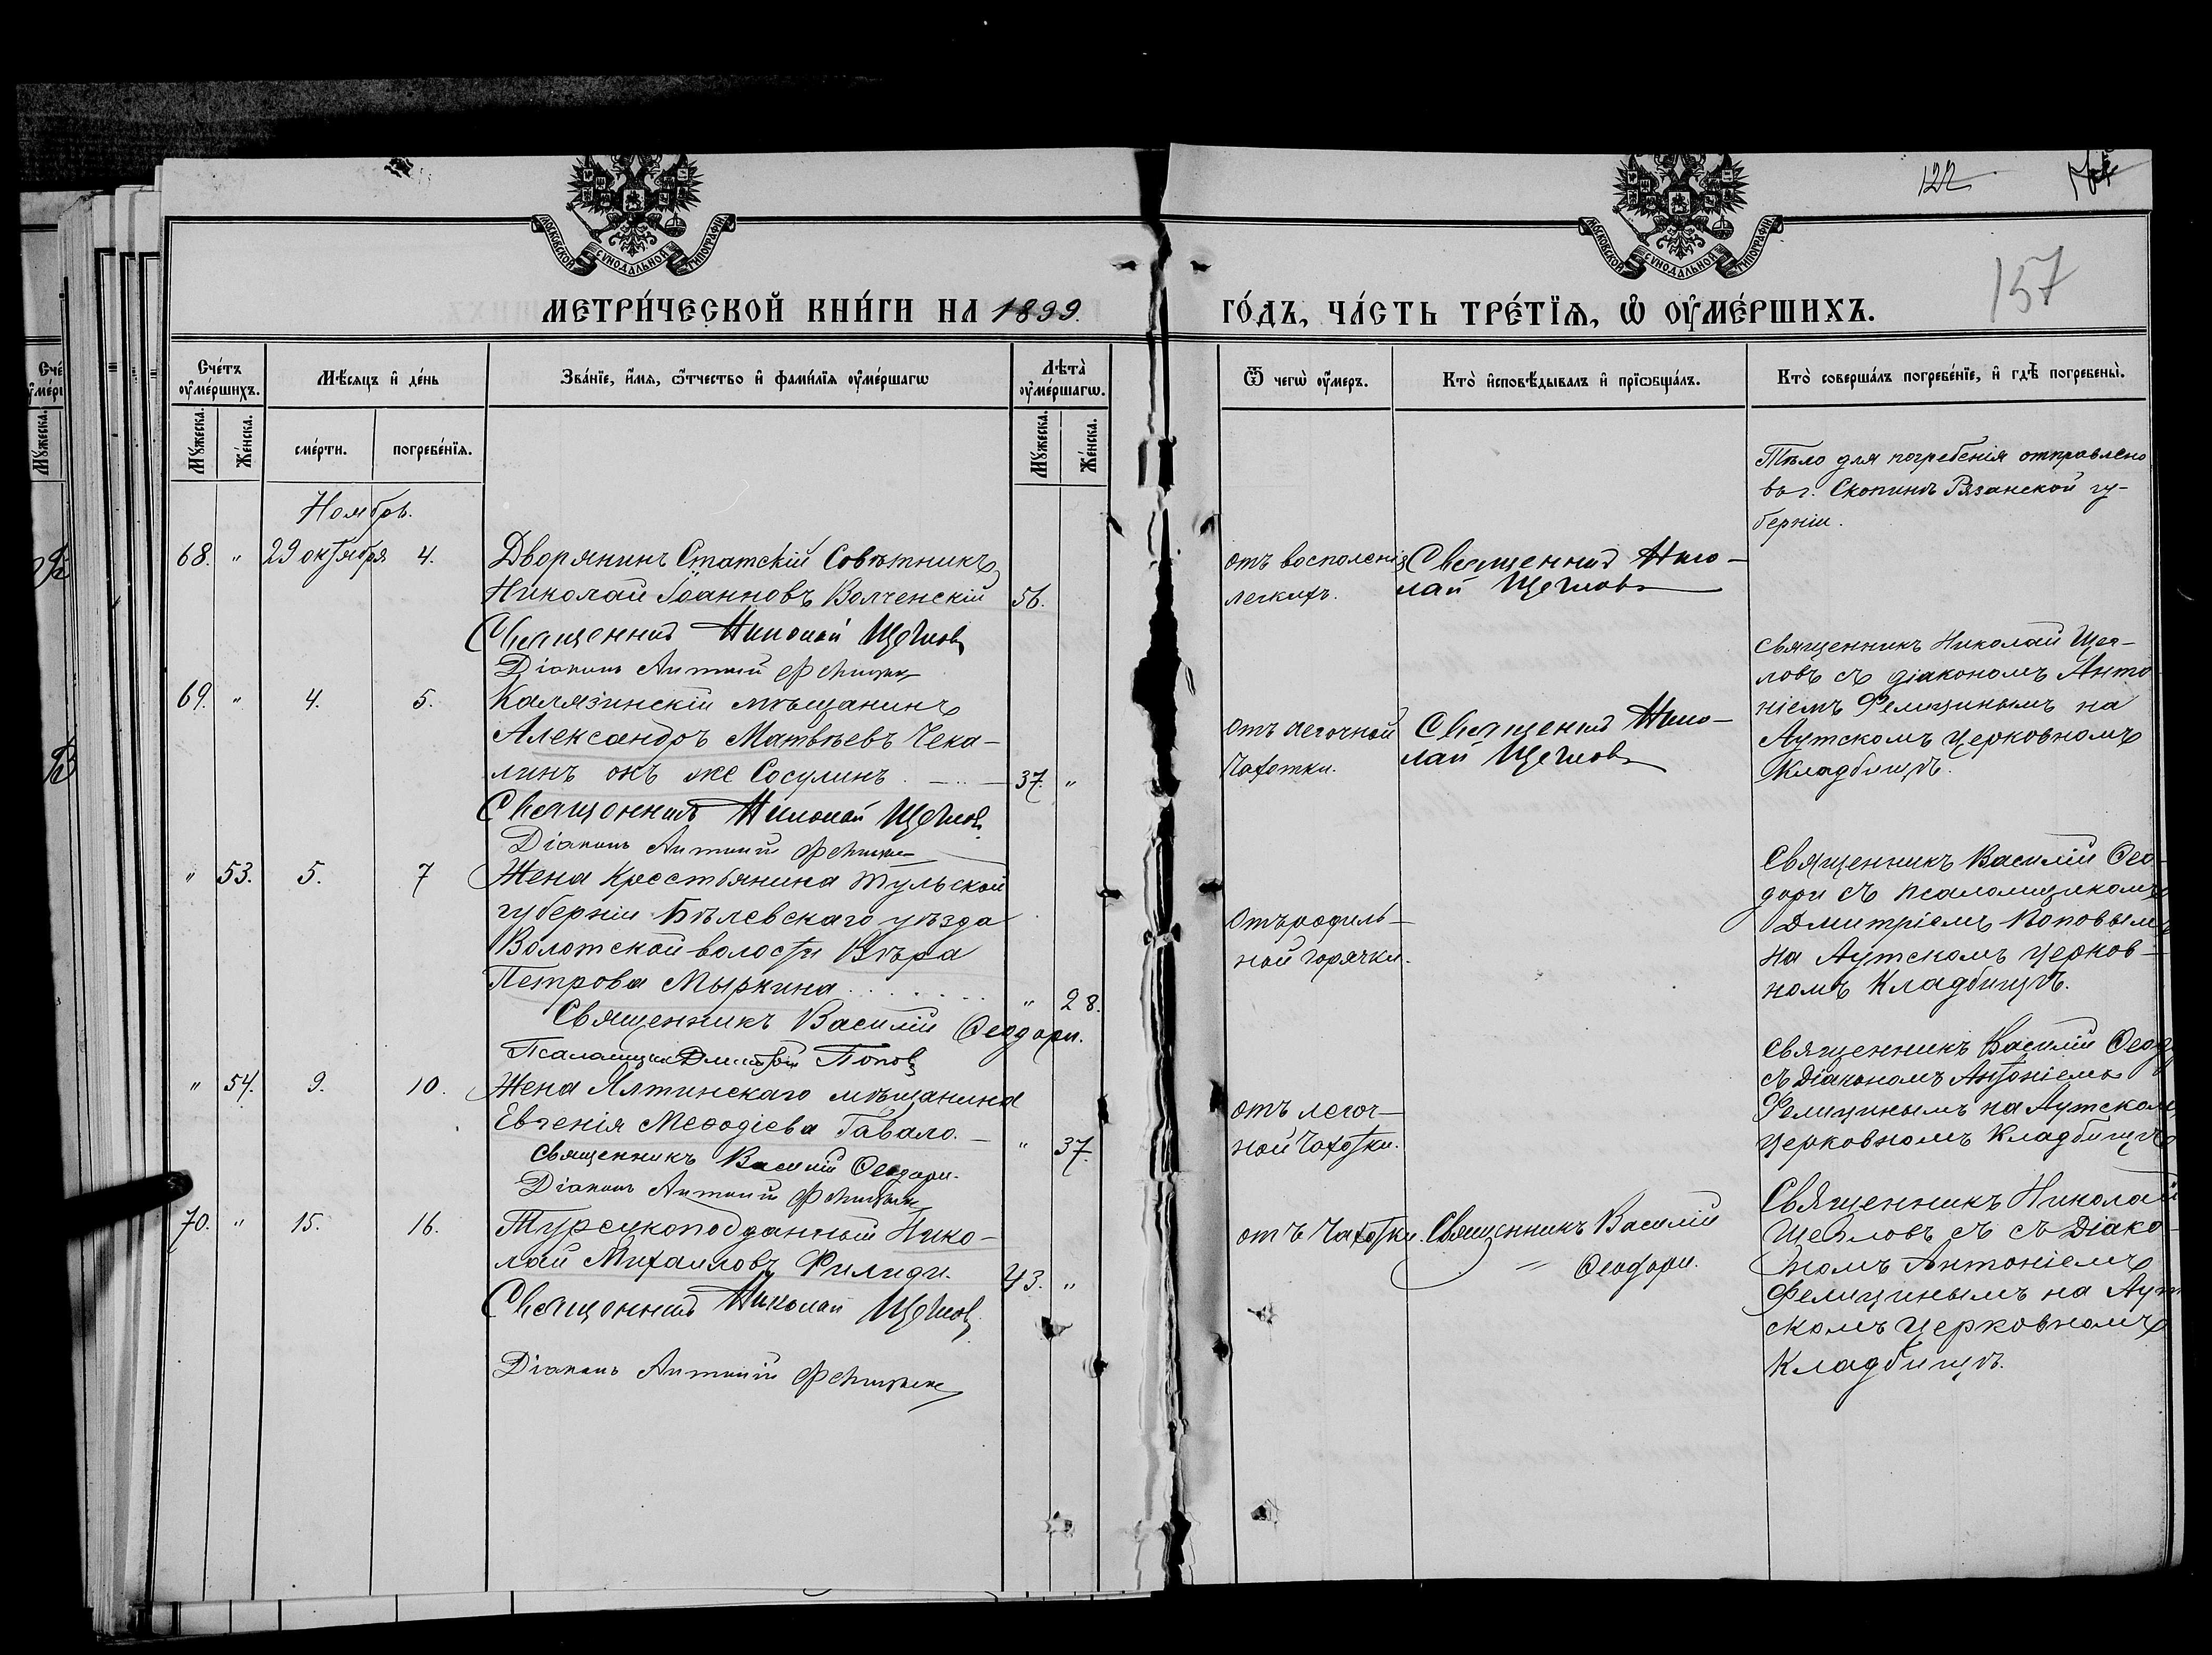 122
157
МОСКОВСКОЙ СѴНОДАЛЬНОЙ ТИПОГРАФІИ
МОСКОВСКОЙ СѴНОДАЛЬНОЙ ТИПОГРАФІИ
МЕТРИ́ЧЕСКОЙ КНИ́ГИ НА 1899. ГО́ДЪ, ЧА́СТЬ ТРЕ́ТЇѦ, Ѡ҆ ОУ҆МЕ́РШИХЪ.
Сче́тъ оу҆ме́ршихъ.
Мѣ́сѧцъ и҆ де́нь
Зва́нїе, и҆́мѧ, ѻ҆́тчество и҆ фами́лїѧ оу҆ме́ршагѡ
Лѣ́та оу҆ме́ршагѡ.
Ѿ чегѡ̀ оу҆́меръ.
Кто̀ и҆сповѣ́дывалъ и҆ прїѡбща́лъ.
Кто̀ соверша́лъ погребе́нїе, и҆ гдѣ̀ погребены̀.
Мꙋ́жеска. Же́нска. сме́рти. погребе́нїѧ. Мꙋ́жеска. Же́нска.
Ноябрь.
68. " 29 октября 4. Дворянинъ Статскій Совѣтникъ
Николай Іоанновъ Волченскій 56.
Священникъ Николай Щегловъ
Діаконъ Антоній Фелицынъ
отъ восполенія
легкихъ.
Священникъ Нико-
лай Щегловъ
Тѣло для погребенія отправлено
въ г. Скопинъ Рязанской гу-
берніи.
69. " 4. 5. Калязинскій мѣщанинъ
Александръ Матвѣевъ Чека-
линъ онъ же Сосулинъ. 37. "
Священникъ Николай Щегловъ
Діаконъ Антоній Фелицынъ
отъ легочной
Чахотки.
Священникъ Нико-
лай Щегловъ
Священникъ Николай Щег-
ловъ съ діакономъ Анто
ніемъ Фелицынымъ на
Аутскомъ церковномъ
Кладбищѣ.
" 53. 5. 7 Жена Крестьянина Тульской
губерніи Бѣлевскаго уѣзда
Волотской волости Вѣра
Петрова Мыркина . . . . . . . " 28.
Священникъ Василій Ѳеодори.
Псаломщикъ Дмитрій Поповъ
Отъ родиль-
ной горячки.
Священникъ Василій Ѳео-
дори съ псаломщикомъ
Дмитріемъ Поповымъ
на Аутскомъ церков-
номъ Кладбищѣ.
" 54. 9. 10. Жена Ялтинскаго мѣщанина
Евгенія Меѳодіева Гавало. " 37.
Священникъ Василій Ѳеодори.
Діаконъ Антоній Фелицынъ
отъ легоч-
ной Чахотки.
Священникъ Василій Ѳеод
съ Діакономъ Антоніемъ
Фелицынымъ на Аутском
церковномъ Кладбищѣ
70. " 15. 16. Турецкоподданный Нико-
лай Михайловъ Филиди. 43. "
Священникъ Николай Щегловъ
Діаконъ Антоній Фелицынъ
отъ Чахотки.
Священникъ Василій
Ѳеодори.
Священникъ Николай
Щегловъ съ съ Діако-
номъ Антоніемъ
Фелицынымъ на Аут
скомъ церковномъ
Кладбищѣ.